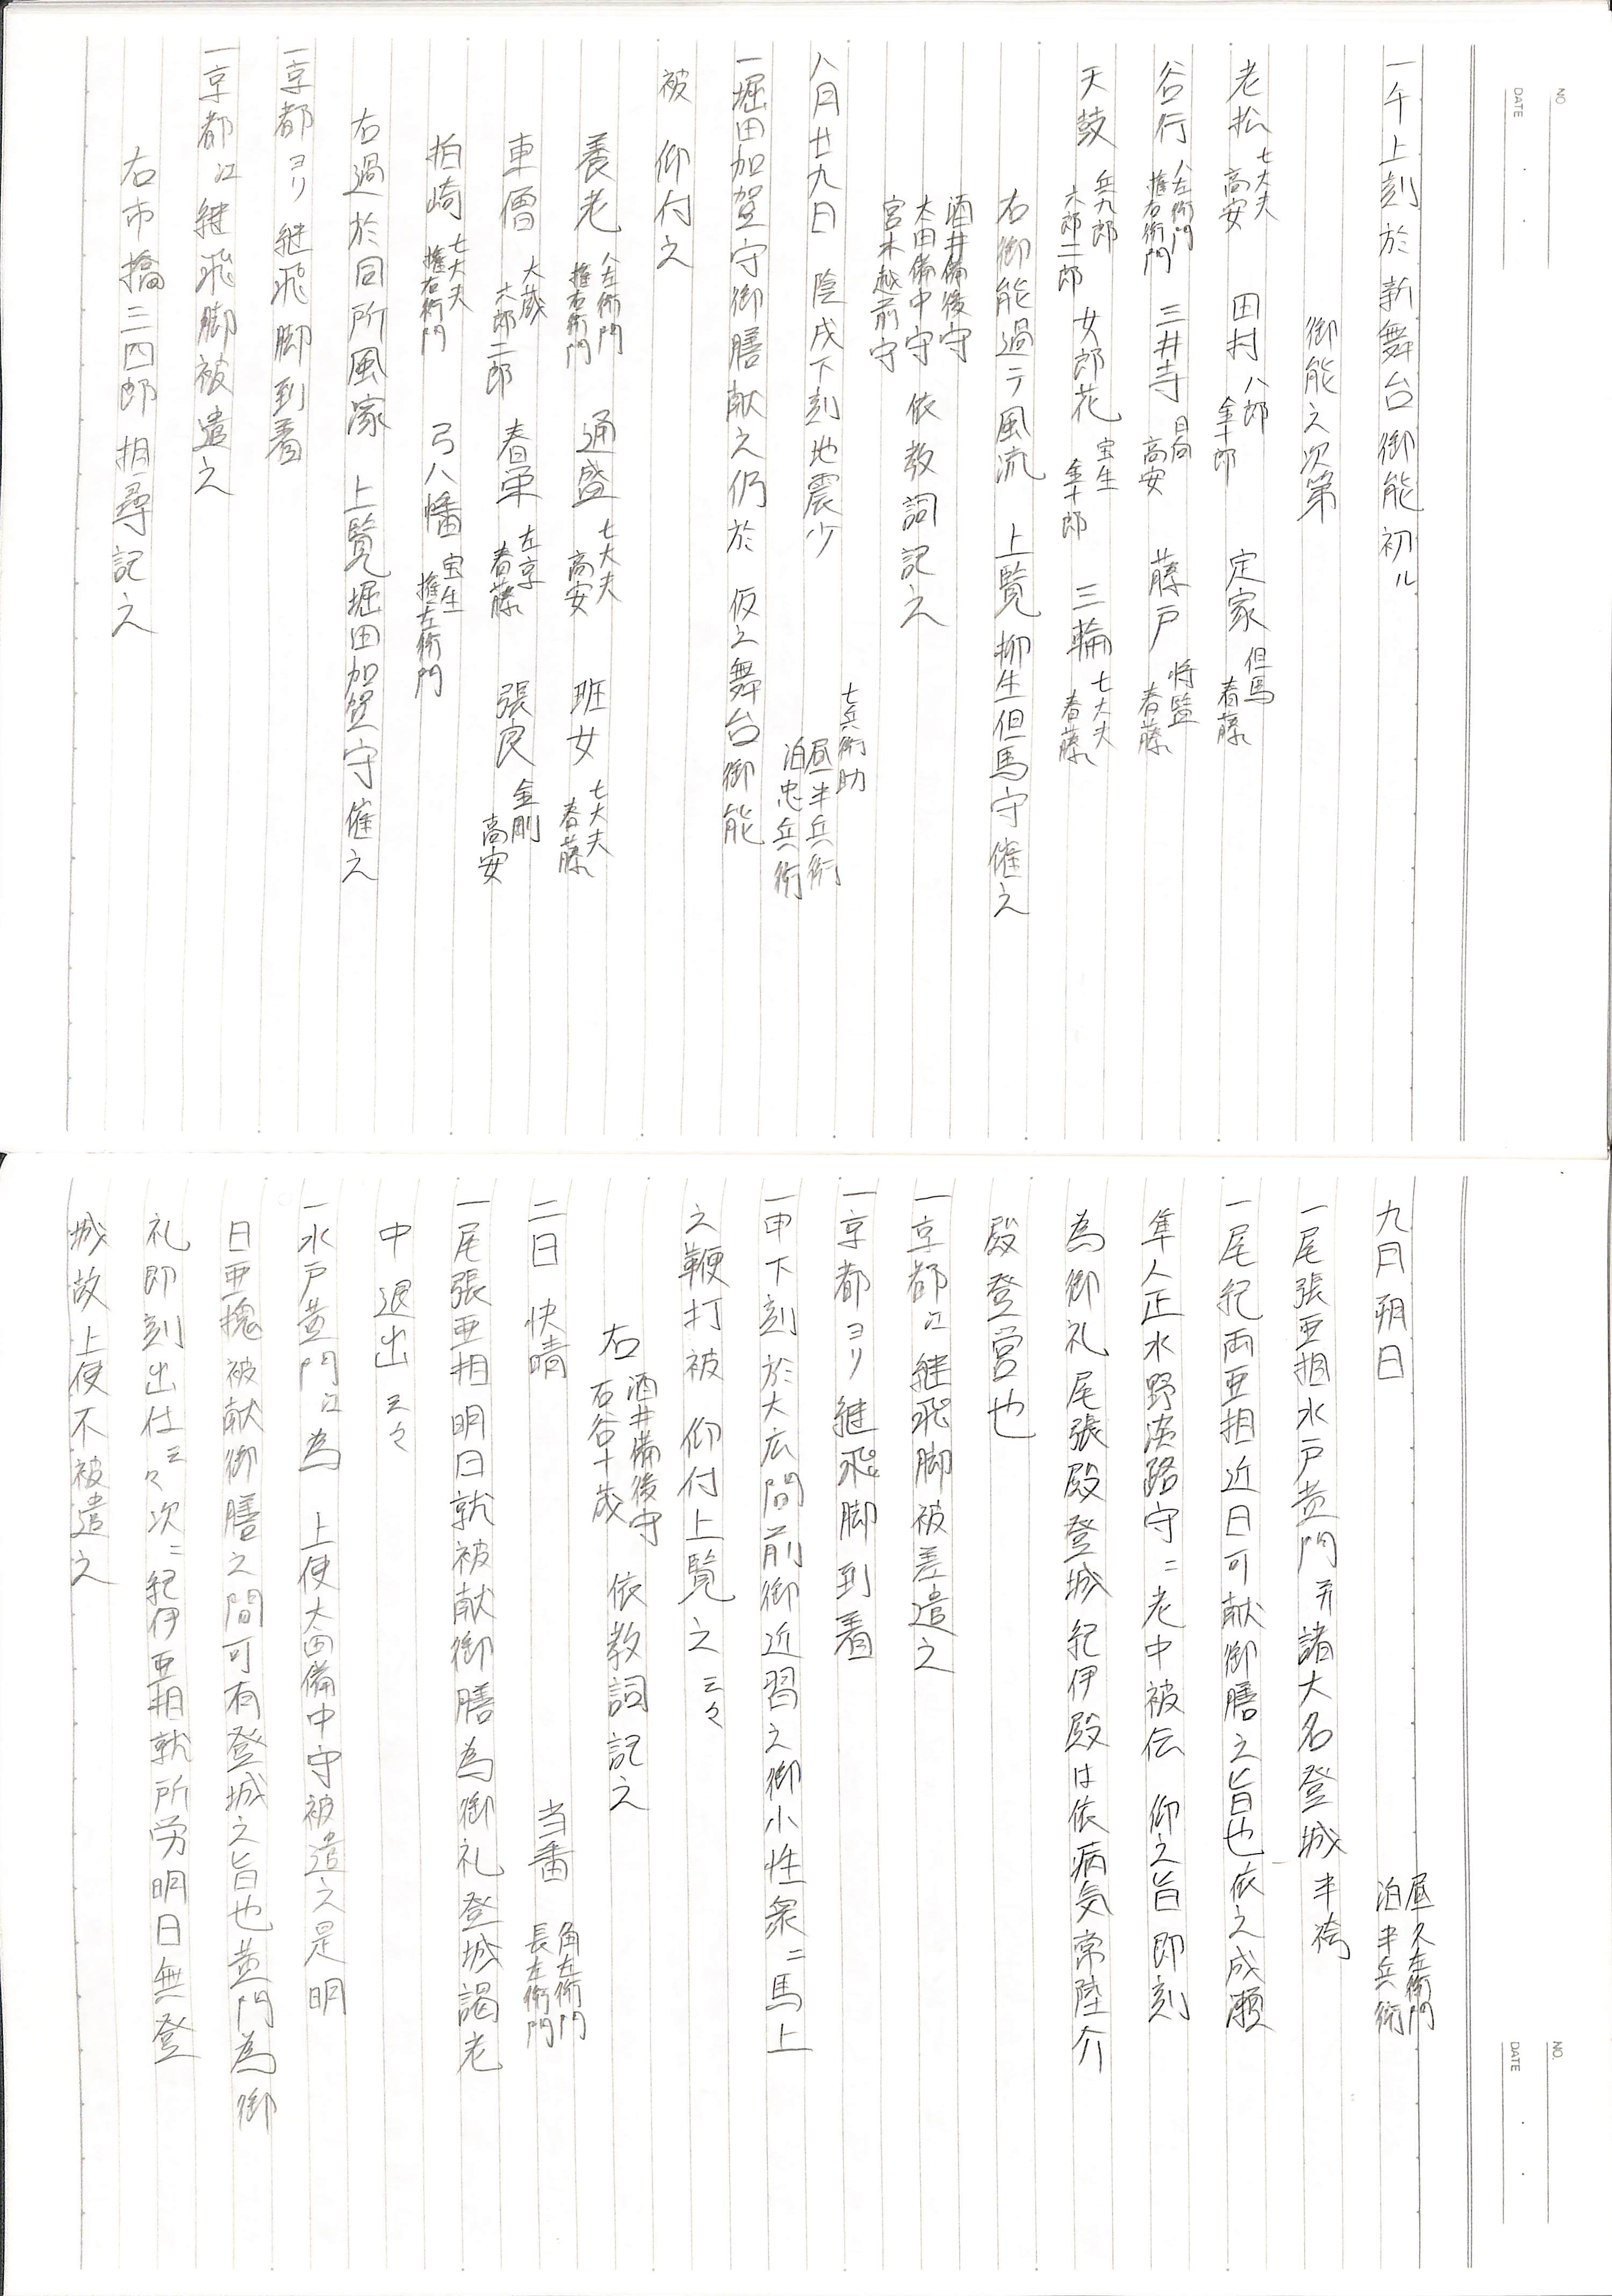 一午上刻於新舞台御能初ル
御能之次第
老松 七大夫 高安 田村 八郎 金十郎 定家 但馬 春藤
谷行 八左衛門 権右衛門 三井寺 日向 高安 藤戸 将監 春藤
天鼓 兵九郎 六郎二郎 女郎花 宝生 金十郎 三輪 七大夫 春藤
右御能過テ風流 上覧柳生但馬守催之
酒井備後守
太田備中守 依教詞記之
宮木越前守
七兵衛助
八月廿九日 陰戌下刻地震少 昼半兵衛
泊忠兵衛
一堀田加賀守御膳献之仍於 仮之舞台御能
被 仰付之
養老 八左衛門 権右衛門 通盛 七大夫 高安 班女 七大夫 春藤
車僧 大蔵 六郎二郎 春栄 左京 春藤 張良 金剛 高安
柏崎 七大夫 権右衛門 弓八幡 宝生 権左衛門
右過於同所風家 上覧堀田加賀守催之
一京都ヨリ継飛脚到着
一京都江継飛脚被遣之
右市橋三四郎相尋記之
NO.
DATE
九月朔日 昼久左衛門 泊半兵衛
一尾張亜相水戸黄門并諸大名登城半袴
一尾紀両亜相近日可献御膳之旨也依之成瀬
隼人正水野淡路守ニ老中被伝 仰之旨即刻
為御礼尾張殿登城紀伊殿は依病気常陸介
殿登営也
一京都江継飛脚被差遣之
一京都ヨリ継飛脚到着
一申下刻於大広間前御近習之御小性衆ニ馬上
之鞭打被 仰付上覧之云々
右 酒井備後守 石谷十蔵 依教詞記之
二日 快晴 当番 角左衛門 長左衛門
一尾張亜相明日就被献御膳為御礼登城謁老
中退出云々
一水戸黄門江為 上使太田備中守被遣之是明
日亜槐被献御膳之間可有登城之旨也黄門為御
礼即刻出仕云々次ニ紀伊亜相就所労明日無登
城故上使不被遣之
NO.
DATE